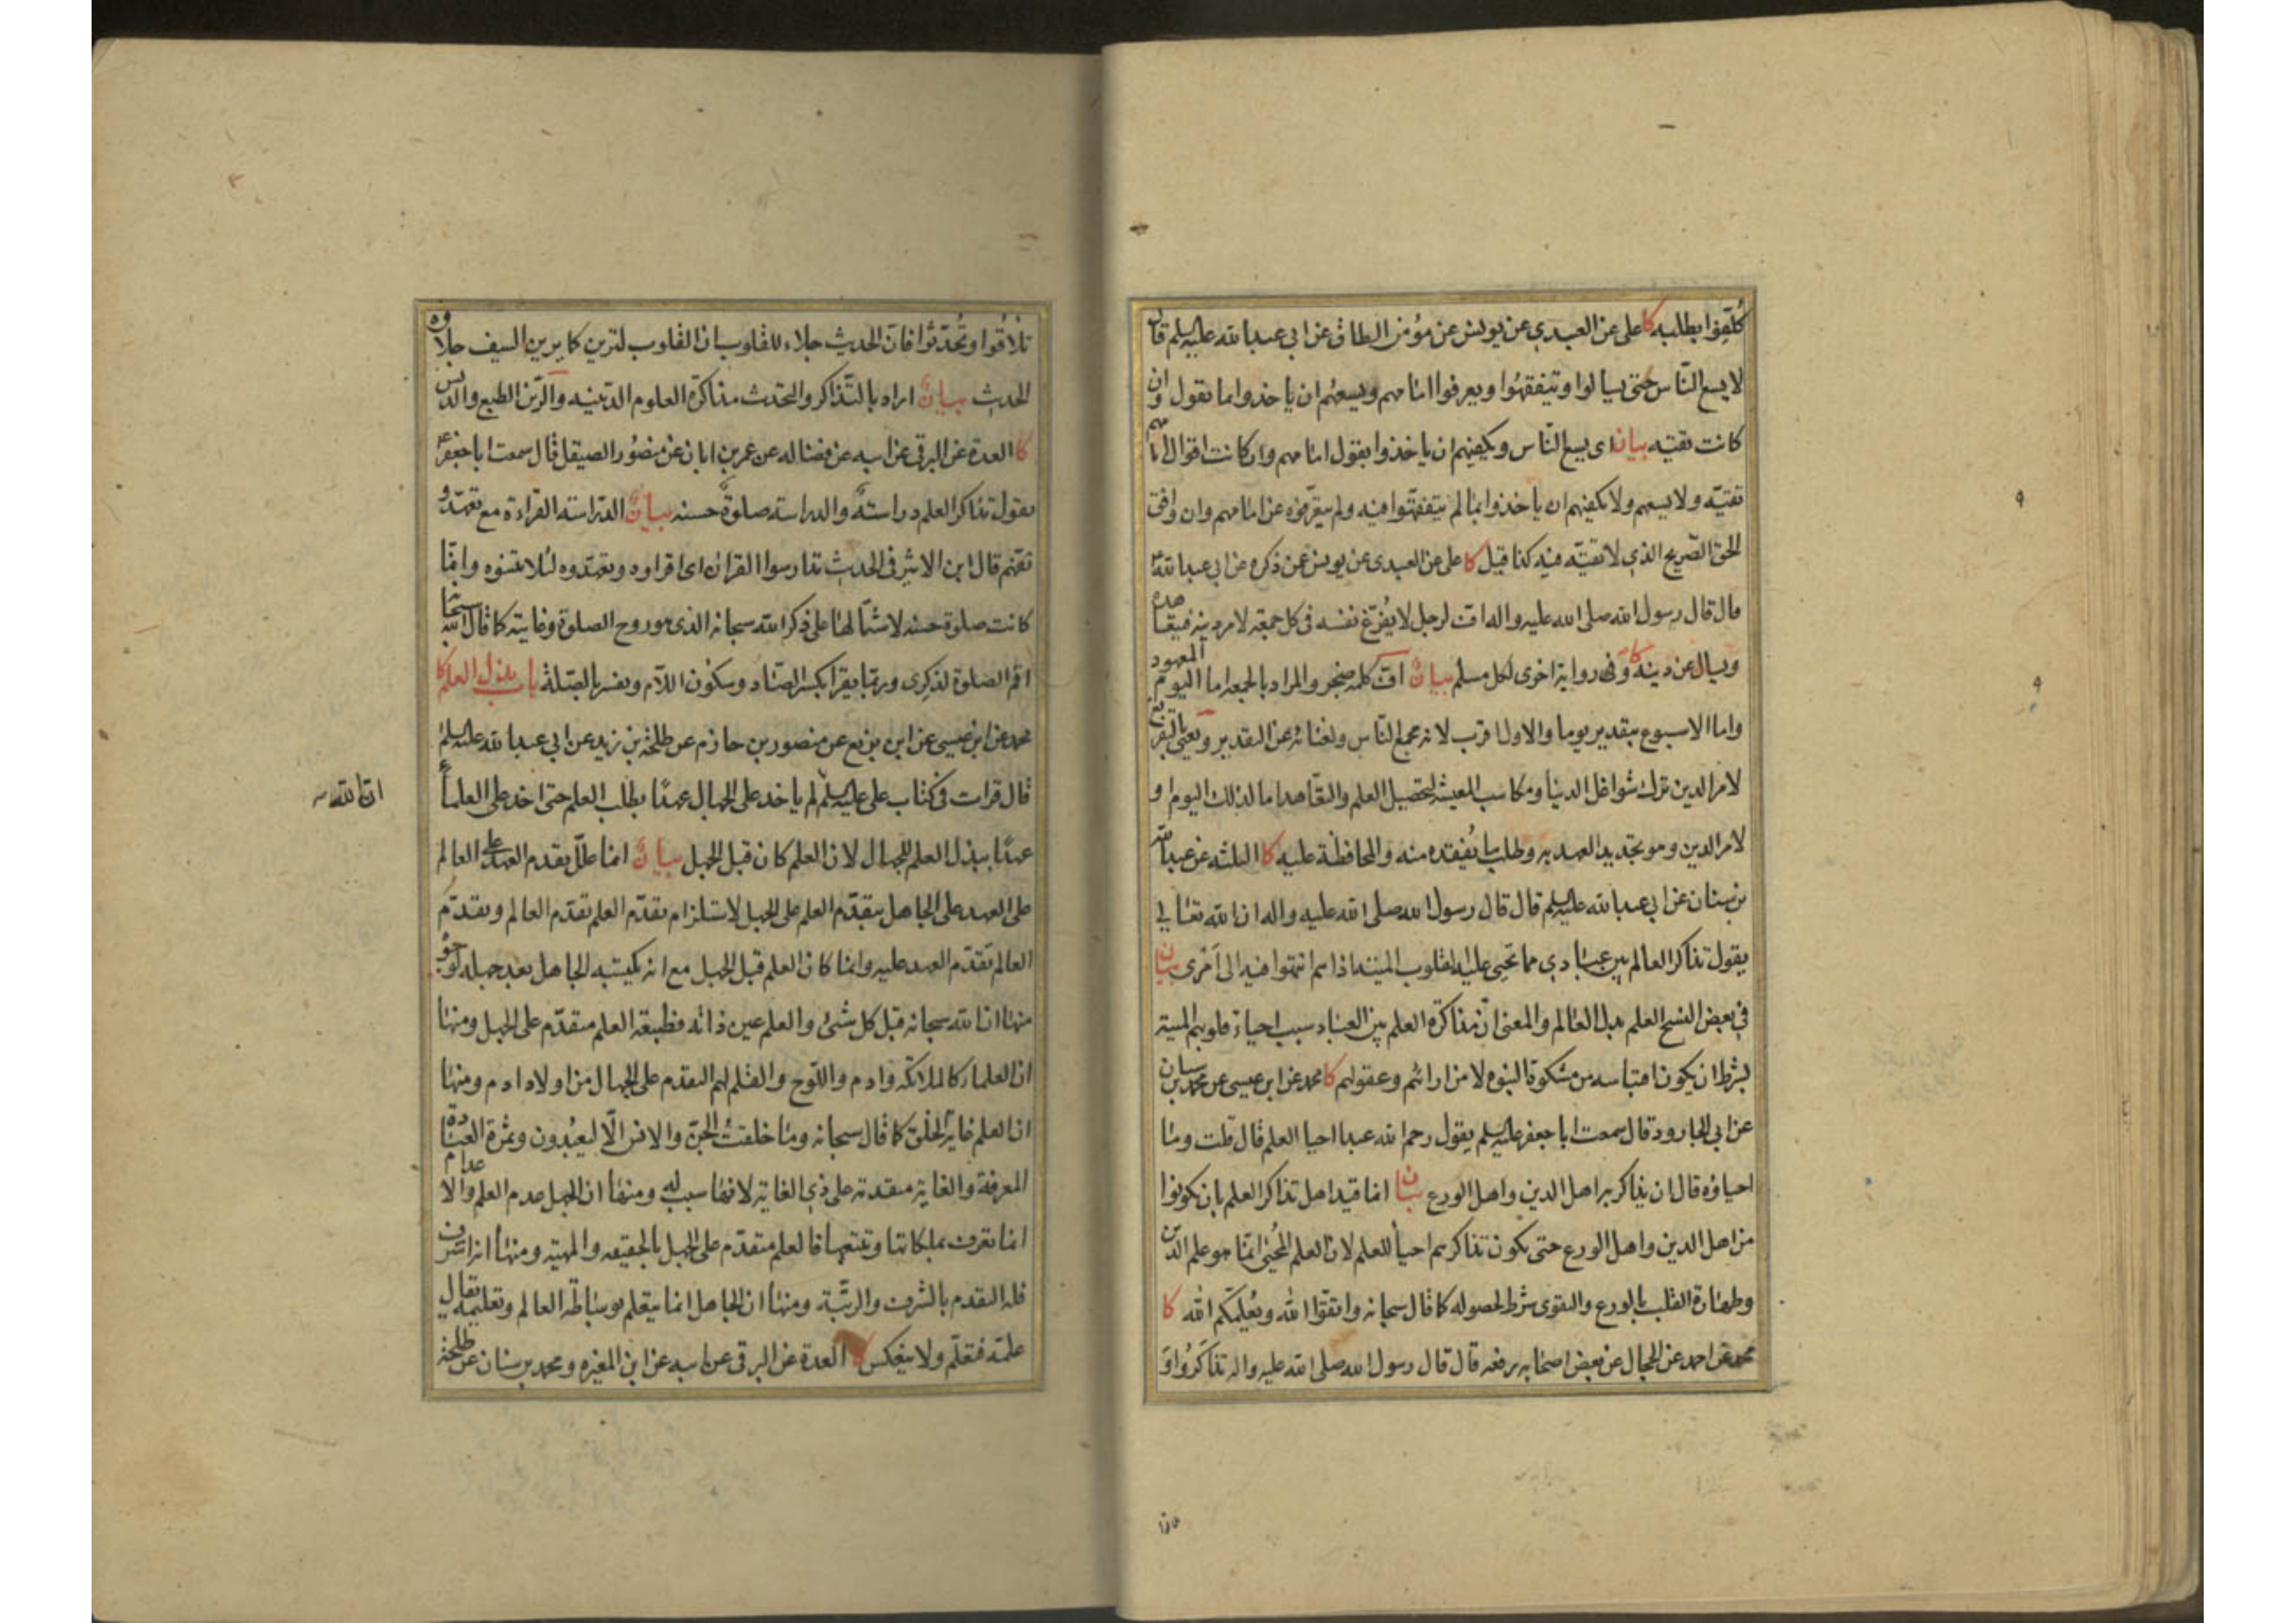 كُلّفوا بطلبه كا على عن العبيدي عن يونس عن مؤمن الطاق عن ابي عبدالله عليه السلم قال
لا يسع الناس حتى يسالوا ويتفقهوا ويعرفوا امامهم ويسعهم ان ياخذوا بما يقول وان
كانت تقيه بيان اى يسع الناس ويكفيهم ان ياخذوا بقول امامهم وان كانت اقوال امامهم
تقيّه ولا يسعهم ولا يكفيهم ان ياخذوا بما لم يتفقهوا فيه ولم يتعرّفوه عن امامهم وان وافق
الحق الصّريح الذي لا تقيّه فيه كذا قيل كا على عن العبيدى عن يونس عن ذكره عن ابي عبدالله ع
قال قال رسول الله صلى الله عليه واله افّ لرجل لا يُفرّغ نفسه فى كل جمعة لامر دينه فيتعاهده
ويسال عن دينه كا وفى رواية اخرى لكل مسلم بيانٌ افّ كلمة ضجر والمراد بالجمعة اما اليوم المعهود
واما الاسبوع بتقدير يوما والاول اقرب لانه مجمع الناس ولغنائه عن التقدير ويعنى بالتفريغ
لامر الدين ترك شواغل الدنيا ومكاسب المعيشة لتحصيل العلم والتعاهد اما لذلك اليوم او
لامر الدين وهو تجديد العهد به وطلب ما يُفتقده منه والمحافظة عليه كا الثلثه عن عبدالله
بن سنان عن ابي عبدالله عليه السلم قال قال رسول الله صلى الله عليه واله ان الله تعالى
يقول تذاكر العالم بين عبادي مما تحيي عليه القلوب الميتة اذا هم انتهوا فيه الى امري بيان
في بعض النسخ العلم بدل العالم والمعنى انّ مذاكرة العلم بين العباد سبب احياء قلوبهم الميتة
بشرط ان يكون اقتباسه من مشكوة النبوه لا من ارائهم وعقولهم كا محمد عن ابن عيسى عن محمد بن سنان
عن ابي الجارود قال سمعت ابا جعفر عليه السلم يقول رحم الله عبدا احيا العلم قال قلت وما
احياؤه قال ان يذاكر به اهل الدين واهل الورع بيان انما قيد اهل تذاكر العلم بان يكونوا
من اهل الدين واهل الورع حتى يكون تذاكرهم احياء للعلم لانّ العلم المُحيى انّما هو علم الدّين
وطهارة القلب بالورع والتقوى شرط لحصوله كما قال سبحانه واتقوا الله ويُعلّمكم الله كا
محمد عن احمد عن الحجال عن بعض اصحابه رفعه قال قال رسول الله صلى الله عليه واله تذاكرُوا و
تلاقوا
تلاقُوا وتُحدّثوا فانّ الحديث جلاء للقلوب ان القلوب لترين كما يرين السيف جلاؤه
الحديث بيانٌ اراد بالتّذاكر والتحدث مذاكرة العلوم الدّينيه والرّين الطبع والدنس
كا العدة عن البرقي عن ابيه عن فضاله عن عمر بن ابان عن منصُور الصيقل قال سمعت ابا جعفر ع
يقول تذاكر العلم دراسةٌ والدراسة صلوةٌ حسنه بيانٌ الدّراسة القراءة مع تعهّد و
تفهّم قال ابن الاثير فى الحديث تدارسوا القران اى اقراوه وتعهّدوه لئلا تنسوه وانّما
كانت صلوة حسنه لاشتمالها على ذكر الله سبحانه الذى هو روح الصلوة وغايته كما قال الله سبحانه
اقم الصّلوة لذكرى وربّما يقرا بكسر الصّاد وسكون اللّام ويفسر بالصّلة باب بذل العلم كا
محمد عن ابن عيسى عن ابن بزيع عن منصور بن حازم عن طلحة بن زيد عن ابي عبدالله عليه السلم
قال قرات فى كتاب على عليه السلم لم ياخذ على الجهال عهدًا بطلب العلم حتى اخذ على العلماء
ان الله
عهدًا ببذل العلم للجهال لان العلم كان قبل الجهل بيانٌ انما علّل تقدم العهد على العالم
على العهد على الجاهل بتقدّم العلم على الجهل لاستلزام تقدّم العلم تقدّم العالم وتقدّم
العالم تقدّم العهد عليه وانما كان العلم قبل الجهل مع انه يكتسبه الجاهل بعد جهله لوجوه
منها ان الله سبحانه قبل كل شئ والعلم عين ذاته فطبيعة العلم متقدّم على الجهل ومنها
ان العلماء كالملائكه وادم واللّوح والقلم لهم التقدم على الجهال من اولاد ادم ومنها
ان العلم غاية الخلق كما قال سبحانه وما خلقتُ الجنّ والانس الّا ليعبُدون وثمرة العبادة
المعرفة والغاية متقدمة على ذي الغاية لانها سبب له ومنها ان الجهل عدم العلم والاعدام
انما تعرف بملكاتها وتتبعها فالعلم متقدّم على الجهل بالحقيقه والمهيّه ومنها انه اشرف
فله التقدم بالشرف والرتبة ومنها ان الجاهل انما يتعلم بوساطة العالم وتعليمه يقال
علمّه فتعلّم ولا ينعكس كا العدة عن البرقى عن ابيه عن ابن المغيره ومحمد بن سنان عن طلحة